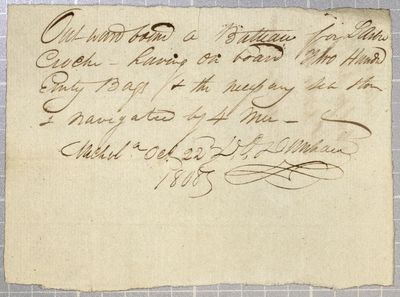 Out ward bound a Bateau for
Creche - having on board Two Hund
Emty Bags & the nessary sea Stor
& navigated by 4 Men -
Michel.ª Oct 22ᵈ
1808